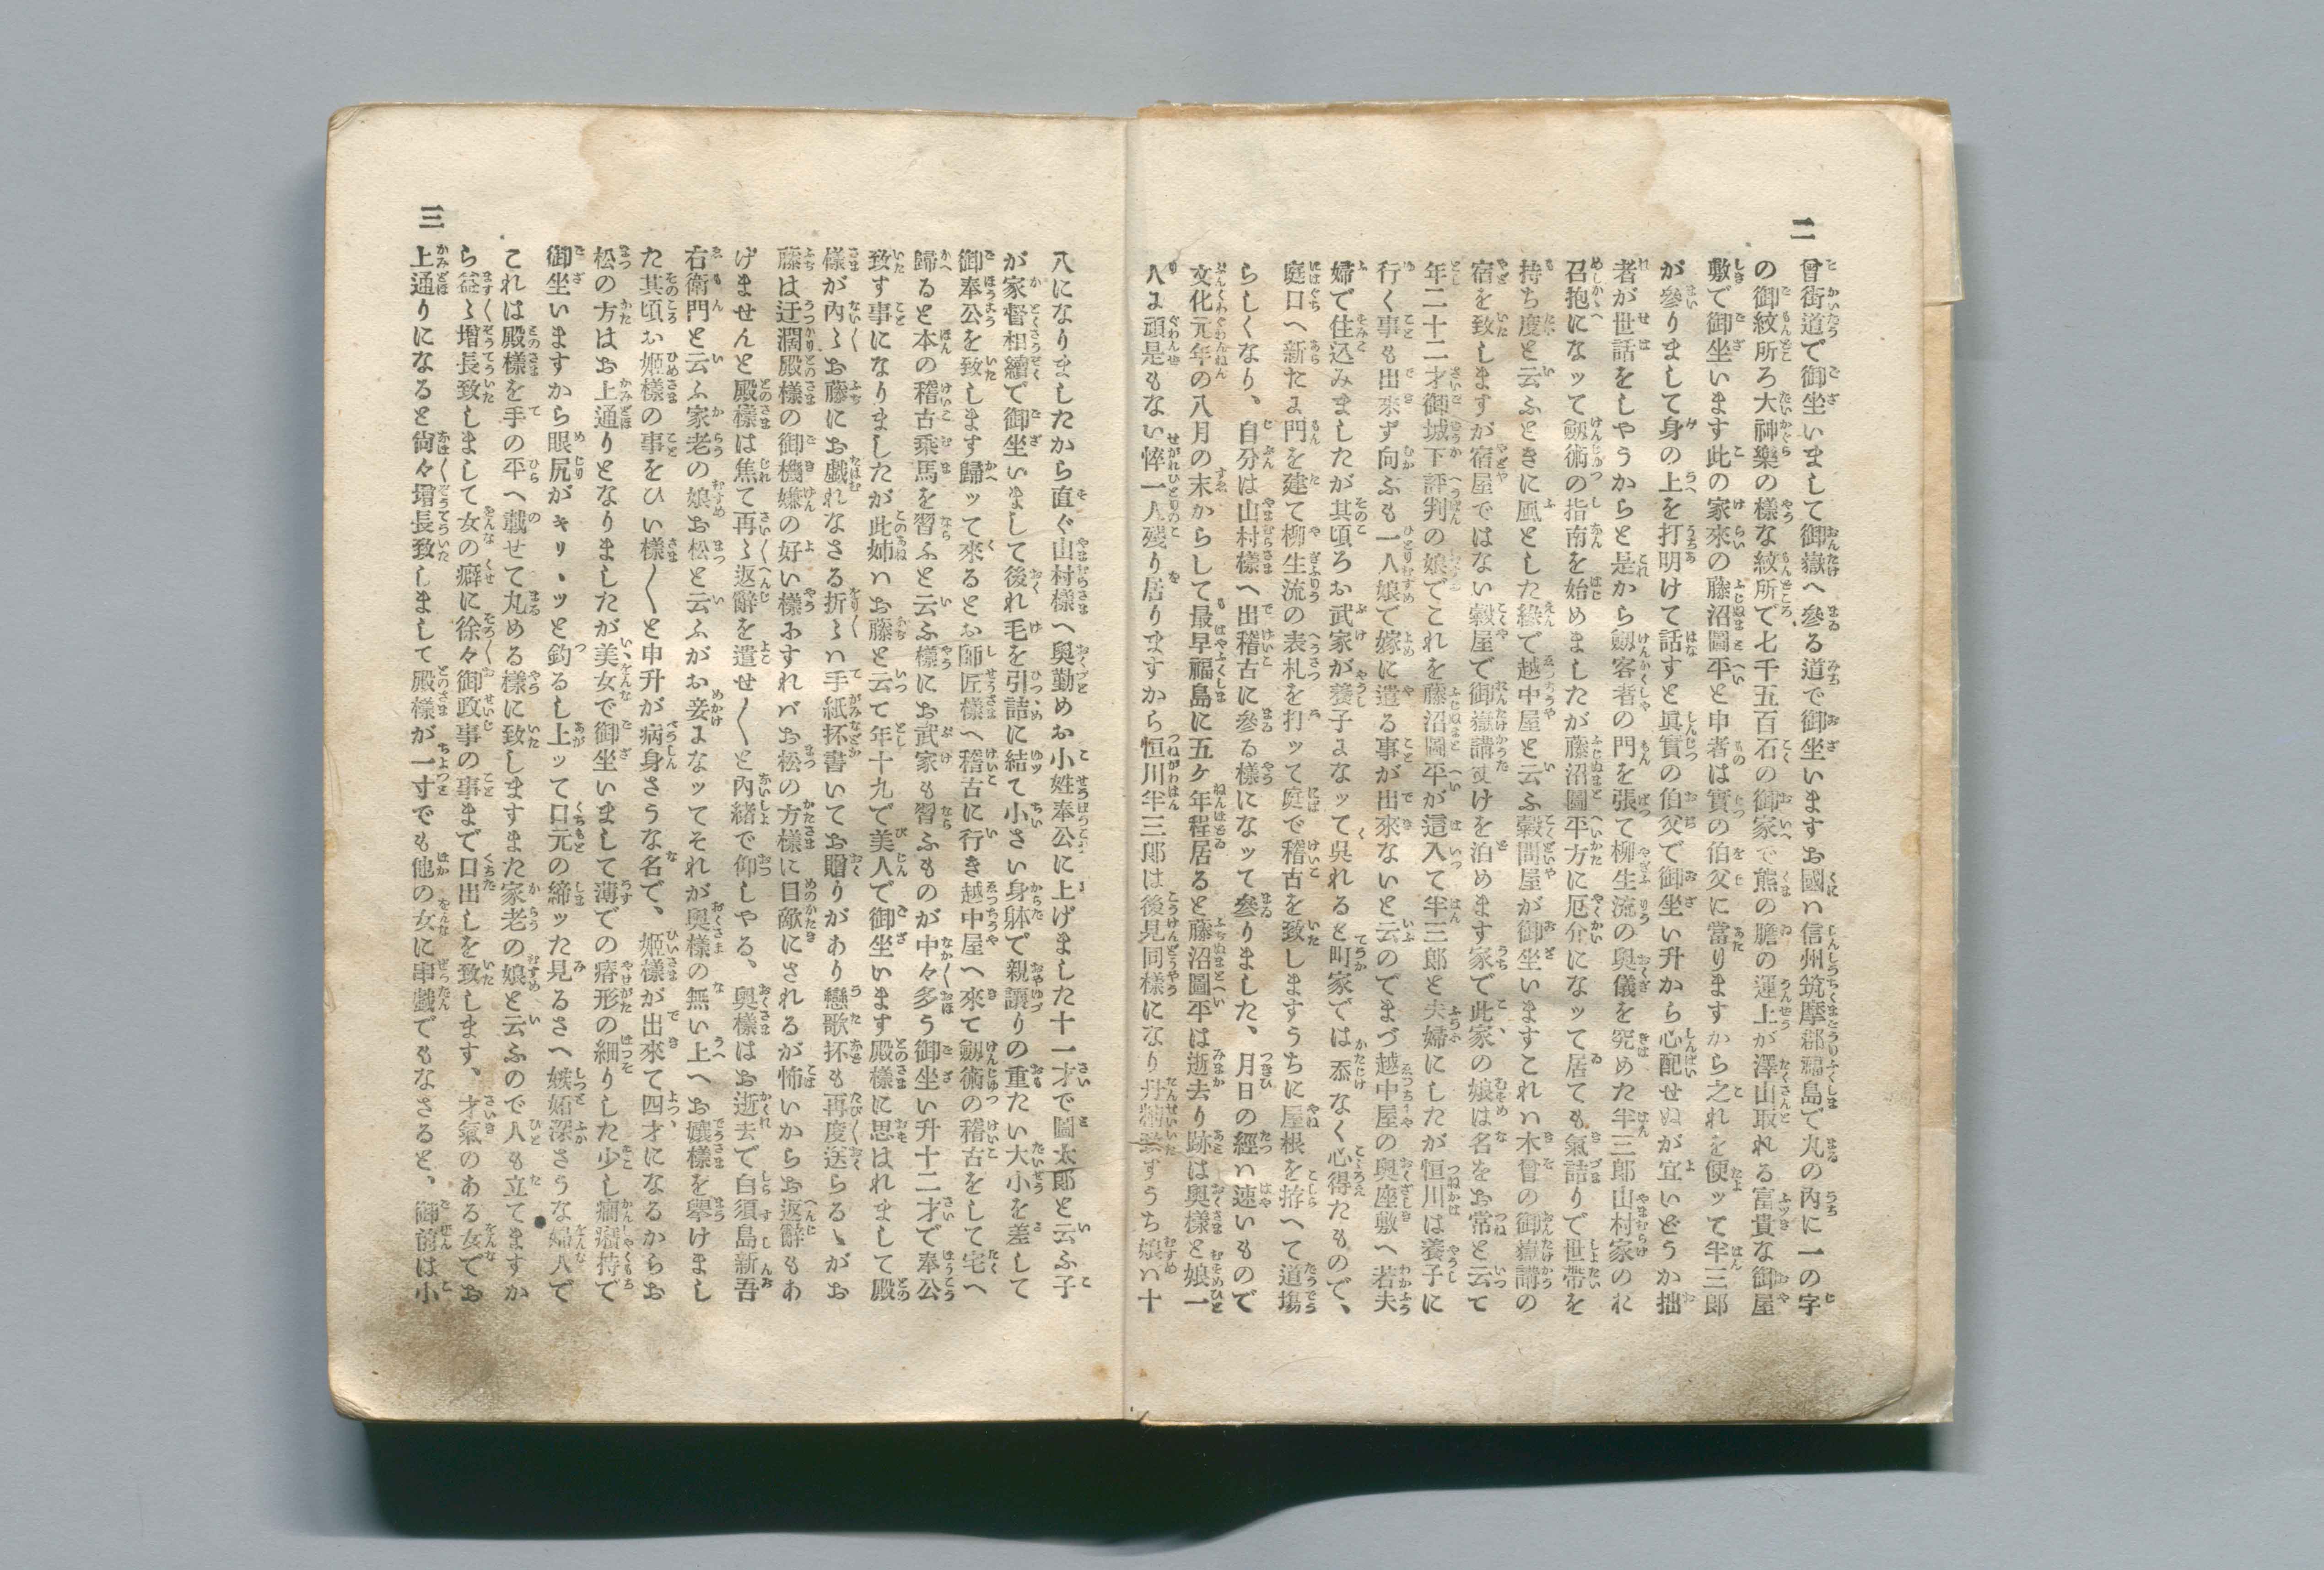 二
曾街道で御坐いまして御嶽へ參る道で御坐いますお國ハ信州筑摩郡福島で丸の內に一の字
の御紋所ろ大神樂の樣な紋所で七千五百石の御家で熊の膽の運上が澤山取れる富貴な御屋
敷で御坐います此の家來の藤沼圖平と申者は實の伯父に當りますから之れを便ッて半三郎
が參りまして身の上を打明けて話すと眞實の伯父で御坐い升から心配せぬが宜いどうか拙
者が世話をしやうからと是から劔客者の門を張て柳生流の奧儀を究めた半三郎山村家のれ
召抱になッて劔術の指南を始めましたが藤沼圖平方に厄介になッて居ても氣詰りで世帶を
持ち度と云ふときに風とした緣で越中屋と云ふ穀問屋が御坐いますこれハ木曾の御嶽講の
宿を致しますが宿屋ではない穀屋で御嶽講丈けを泊めます家で此家の娘は名をお常と云て
年二十二才御城下評判の娘でこれを藤沼圖平が這入て半三郎と夫婦にしたが恒川は養子に
行く事も出來ず向ふも一人娘で嫁に遣る事が出來ないと云のでまづ越中屋の奧座敷へ若夫
婦で住込みましたが其頃ろお武家が養子よなッて呉れると町家では忝なく心得たもので、
庭口へ新たよ門を建て柳生流の表札を打ッて庭で稽古を致しますうちに屋根を拵へて道塲
らしくなり、自分は山村樣へ出稽古に參る樣になッて參りました、月日の經ハ速いもので
文化元年の八月の末からして最早福島に五ケ年程居ると藤沼圖平は逝去り跡は奧樣と娘一
人よ頑是もない悴一人殘り居りますから恒川半三郎は後見同樣になり丹精致すうち娘ハ十
八になりましたから直ぐ山村樣へ奧勤めお小姓奉公に上げました十一才で圖太郎と云ふ子
が家督相續で御坐いまして後れ毛を引詰に結て小さい身躰で親讓りの重たい大小を差して
御奉公を致します歸ッて來るとお師匠樣へ稽古に行き越中屋へ來て劔術の稽古をして宅へ
歸ると本の稽古乘馬を習ふと云ふ樣にお武家も習ふものが中々多う御坐い升十二才で奉公
致す事になりましたが此姉ハお藤と云て年十九で美人で御坐います殿樣に思はれまして殿
樣が內々お藤にお戲れなさる折々ハ手紙抔書いてお贈りがあり戀歌抔も再度送らるゝがお
藤は迂濶殿樣の御機嫌の好い樣おすれバお松の方樣に目敵にされるが怖いからお返辭もあ
げませんと殿樣は焦て再々返辭を遣せ〱と內緖で仰しやる、奧樣はお逝去で白須島新吾
右衛門と云ふ家老の娘お松と云ふがお妾よなッてそれが奧樣の無い上へお孃樣を擧けまし
た其頃お姬樣の事をひい樣〱と申升が病身さうな名で、姬樣が出來て四才になるからお
松の方はお上通りとなりましたが美女で御坐いまして薄での瘠形の細りした少し癇癪持で
御坐いますから眼尻がキリヽッと釣るし上ッて口元の締ッた見るさへ嫉妬深さうな婦人で
これは殿樣を手の平へ載せて丸める樣に致しますまた家老の娘と云ふので人も立てますか
ら益々增長致しまして女の癖に徐々御政事の事まで口出しを致します、才氣のある女でお
上通りになると尙々增長致しまして殿樣が一寸でも他の女に串戲でもなさると、御前は小
三